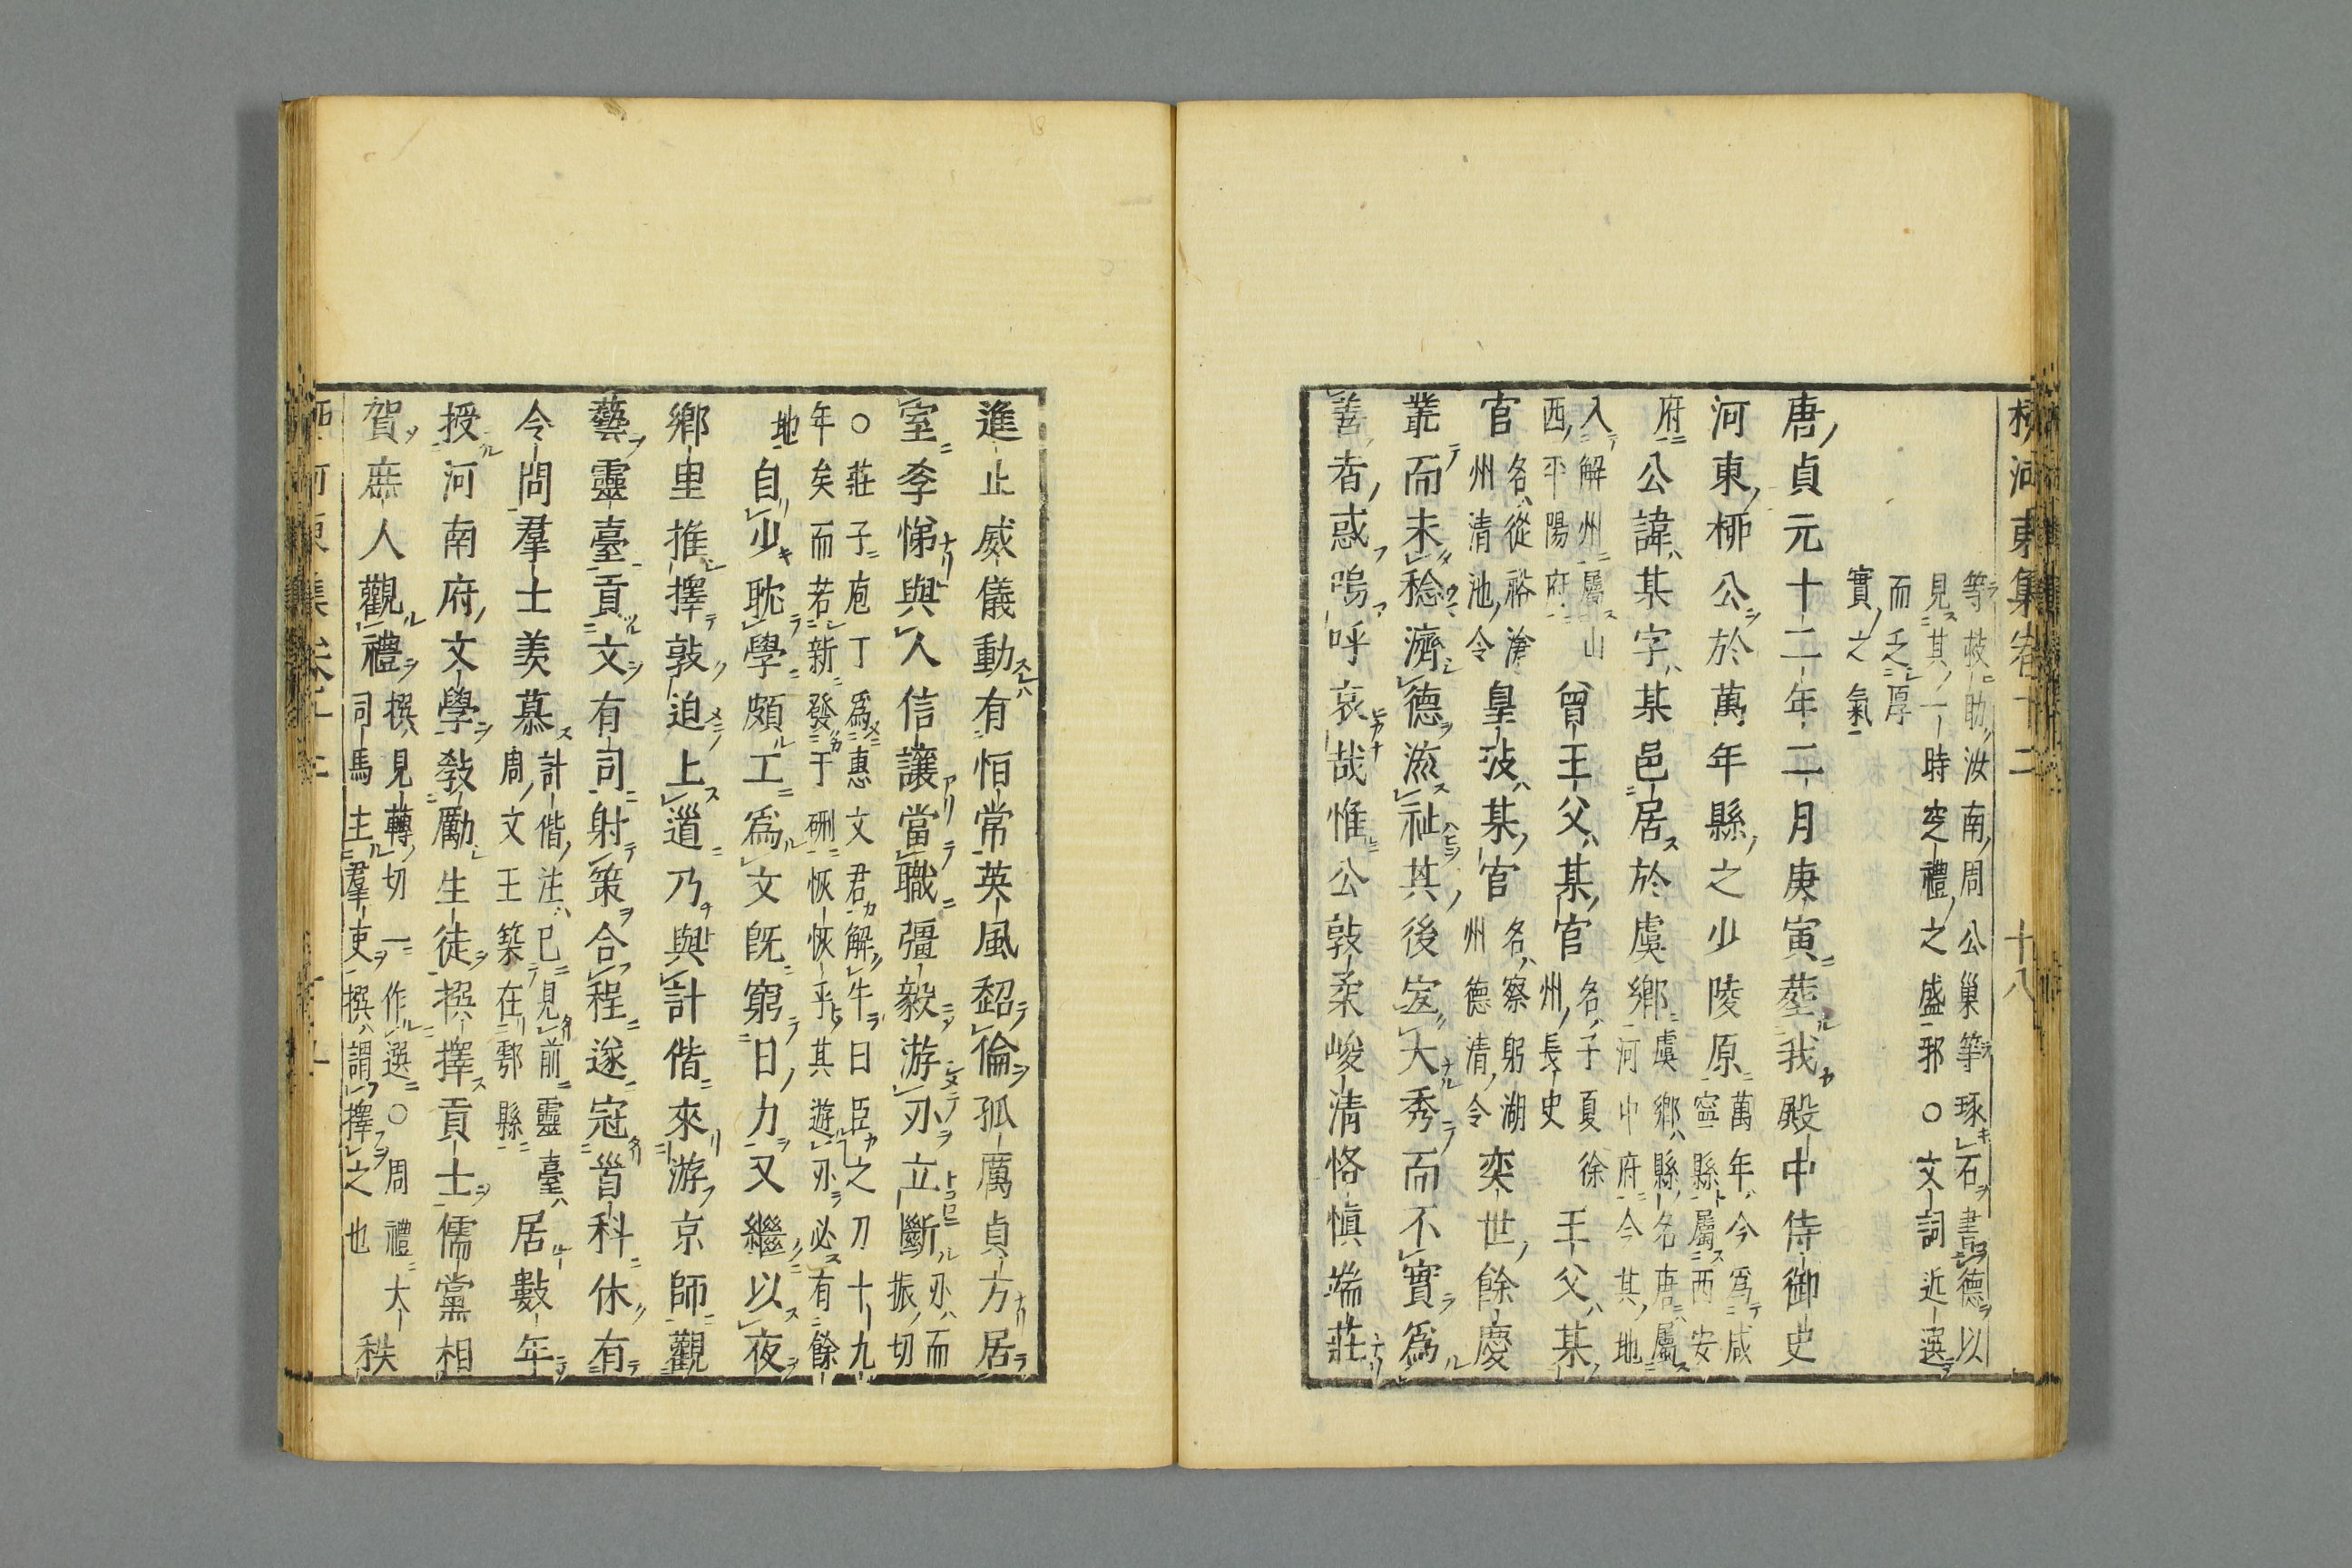 柳河東集卷十二　十八
等技助汝南周公巢等琢石書德以
見其一時空禮之盛邪○文詞近選
而乏厚
實之氣
唐貞元十二年二月庚寅葬我殿中侍御史
河東柳公於萬年縣之少陵原萬年今爲咸寧縣屬西安
府公諱某字某邑居於虞鄉虞鄉縣名唐屬河中府今其地
入解州屬山西平陽府曾王父某官名子夏徐州長史王父某
官名從裕滄州清池令皇某官名察躬湖州德清令奕世餘慶
叢而未稔濟德流祉其後宜大秀而不實爲
善者惑嗚呼哀哉惟公敦柔峻清恪愼端莊
進止威儀動有恒常英風超倫孤厲貞方居
室孝悌與人信讓當職彊毅游刃立斷刃而振切
○莊子庖丁爲惠文君解牛曰臣之刀十九年矣而若新發于硎恢恢乎其遊刃必有餘
地自少耽學頗工爲文旣窮日力又繼以夜
鄉里推擇敦迫上道乃與計偕來游京師觀
藝靈臺貢文有司射策合程遂冠首科休有
令問羣士羨慕計偕注已見前靈臺周文王築在鄠縣居數年
授河南府文學敎勵生徒撰擇貢士儒黨相
賀庶人觀禮撰見轉切一作選○周禮大司馬主羣吏撰謂擇之也秩